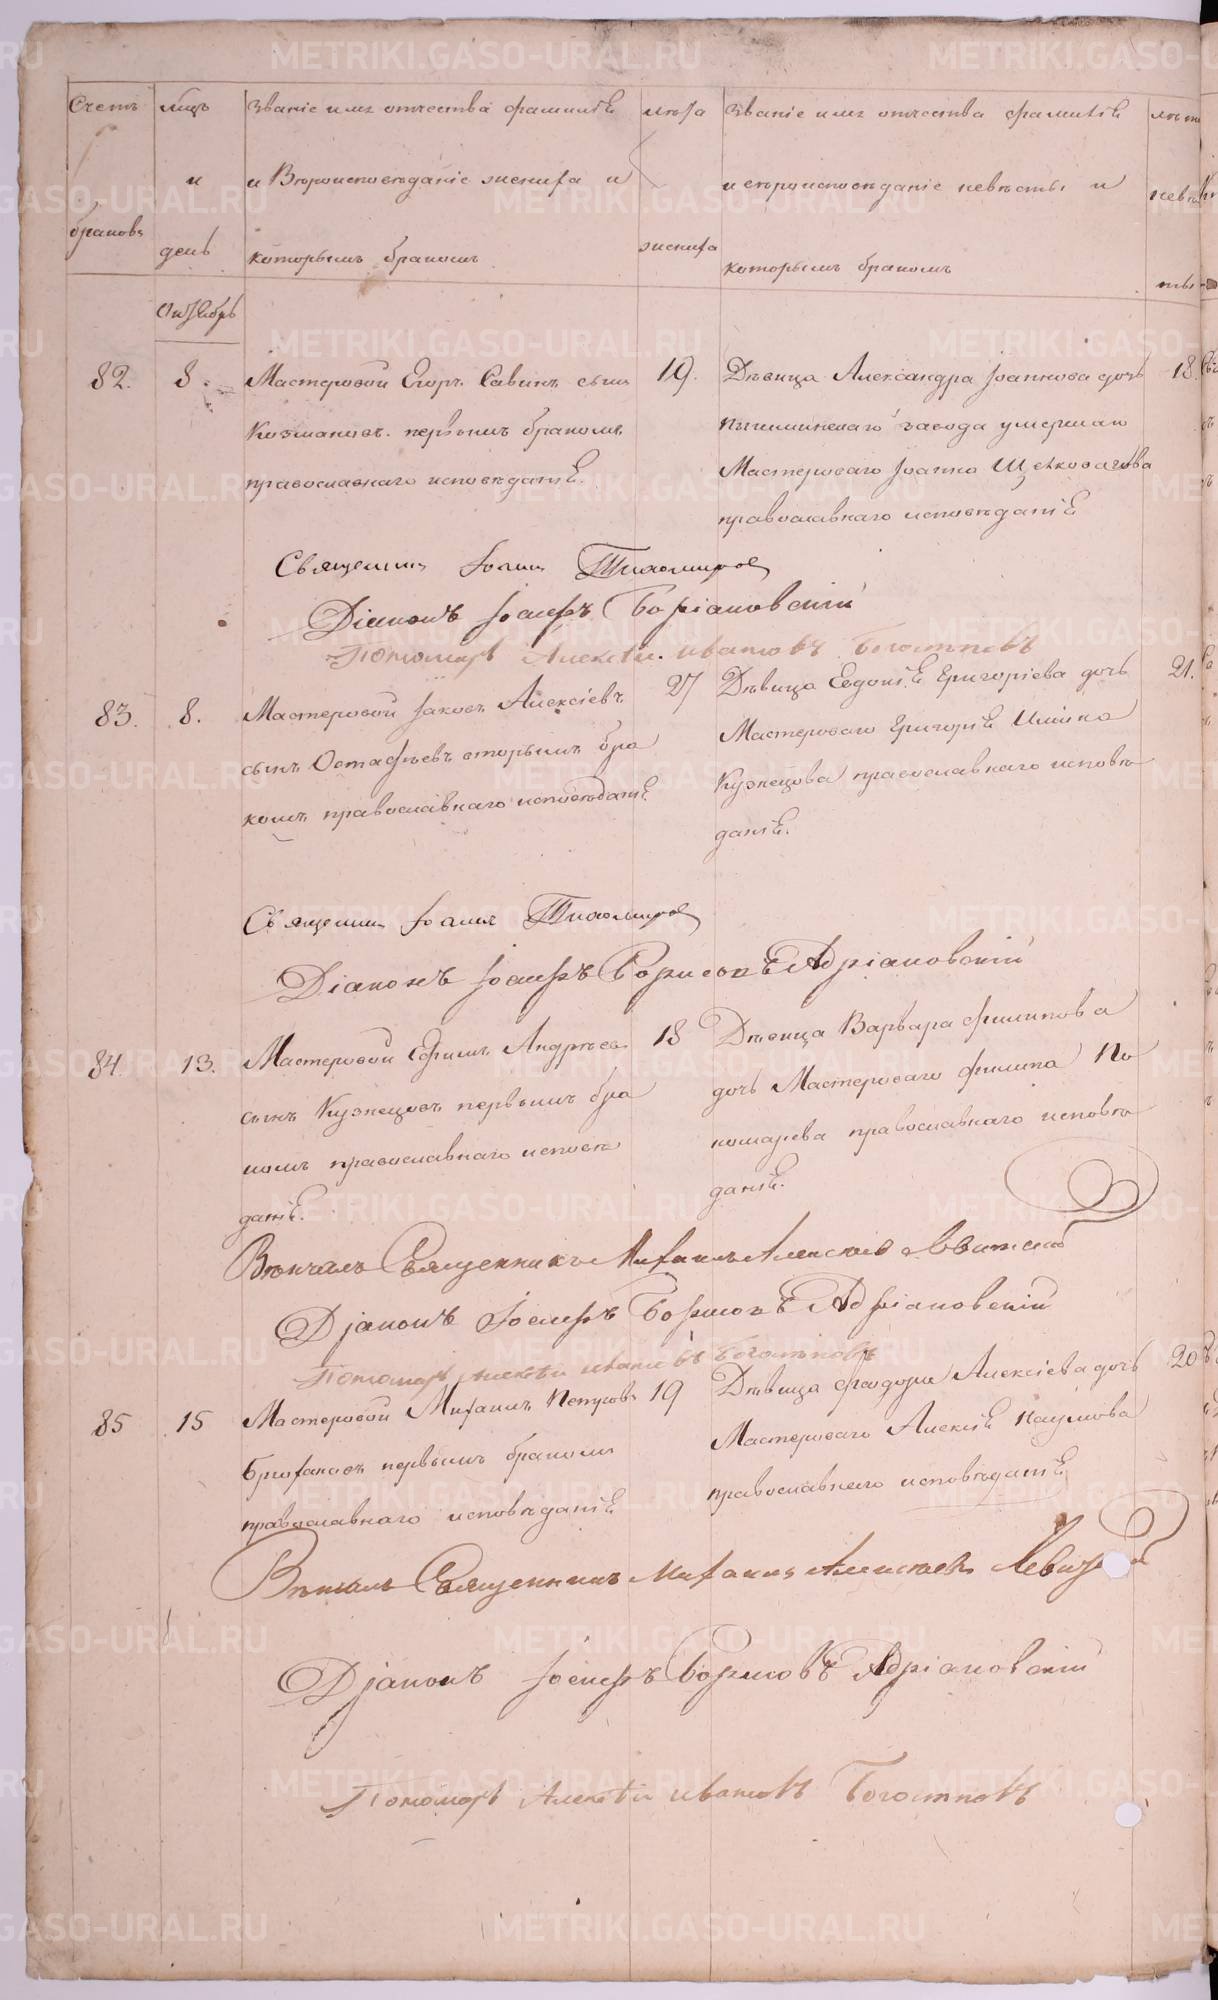 Счетъ
браковъ
Мцъ
и
день
Званіе имя отчества фамиліе
и Вероисповѣданіе жениха и
которымъ бракомъ
лѣта
жениха
Званіе имя отчества фамиліе
и вероисповѣданіе невѣсты и
которымъ бракомъ
лѣта
невѣ
сты
Октябрь
82.
8.
Мастеровой Егоръ Савинъ сынъ
первымъ бракомъ
православнаго исповѣданіе.
19.
Дѣвица Александра Іоаннова дочь
Пышминскаго завода умершаго
Мастероваго Іоанна
православнаго исповѣданіе
18.
Священникъ Іоаннъ Тихомировъ
Діаконъ Іосифъ
Пономарь Алексѣй Ивановъ
83.
8.
Мастеровой Іаковъ Алексіевъ
сынъ Остафьевъ вторымъ бра
комъ православнаго исповѣданіе
27
Дѣвица Евдокіе Григоріева дочь
Мастероваго Григоріе
Кузнецова православнаго исповѣ
даніе.
21.
Священникъ Іоаннъ Тихомировъ
Діаконъ Іосифъ Борисовъ Адріановскій
84.
13.
Мастеровой Ефимъ Андреевъ
сынъ Кузнецовъ первымъ бра
комъ православнаго исповѣ
даніе.
18
Дѣвица Варвара Филипова
дочь Мастероваго Филипа По
номарева православнаго исповѣ
даніе.
Вѣнчалъ Священникъ Михаилъ Алексіевъ Левитскій
Діаконъ Іосифъ Борисовъ Адріановскій
Пономарь Алексѣй Ивановъ
85
15
Мастеровой Михаилъ Петровъ
первымъ бракомъ
православнаго исповѣданіе
19
Дѣвица Феодора Алексіева дочь
Мастероваго Алексіе Наумова
православнаго исповѣданіе
20
Вѣнчалъ Священникъ Михаилъ Алексіевъ
Діаконъ Іосифъ Борисовъ Адріановскій
Пономарь Алексѣй Ивановъ
METRIKI.GASO-URAL.RU